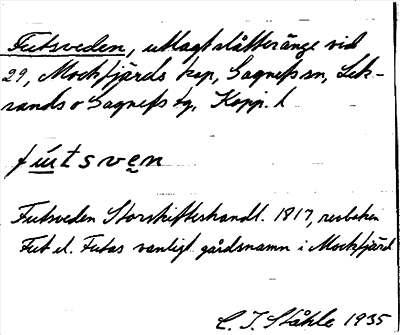 Futsveden, utlagt slåtteränge vid
29, Mockfjärds kap, Gagnefs sn, Lek-
sands o Gagnefs tg, Kopp. l
fútsven
Futsveden Storskifteshandl. 1817,
Fut el. Futas vanligt gårdsnamn i Mockfjärd
C. I. Ståhle 1935